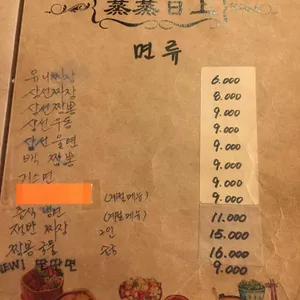 蒸蒸日上
면류
유니짜장 6.000
삼선짜장 8.000
삼선짬뽕 9.000
삼선우동 9.000
삼선울면 9.000
백짬뽕 9.000
기스면 9.000
중식냉면 (계절메뉴) 11.000
(계절메뉴)
쟁반짜장 2인 15.000
짬뽕국물 16.000
NEW! 탄탄면 9.000